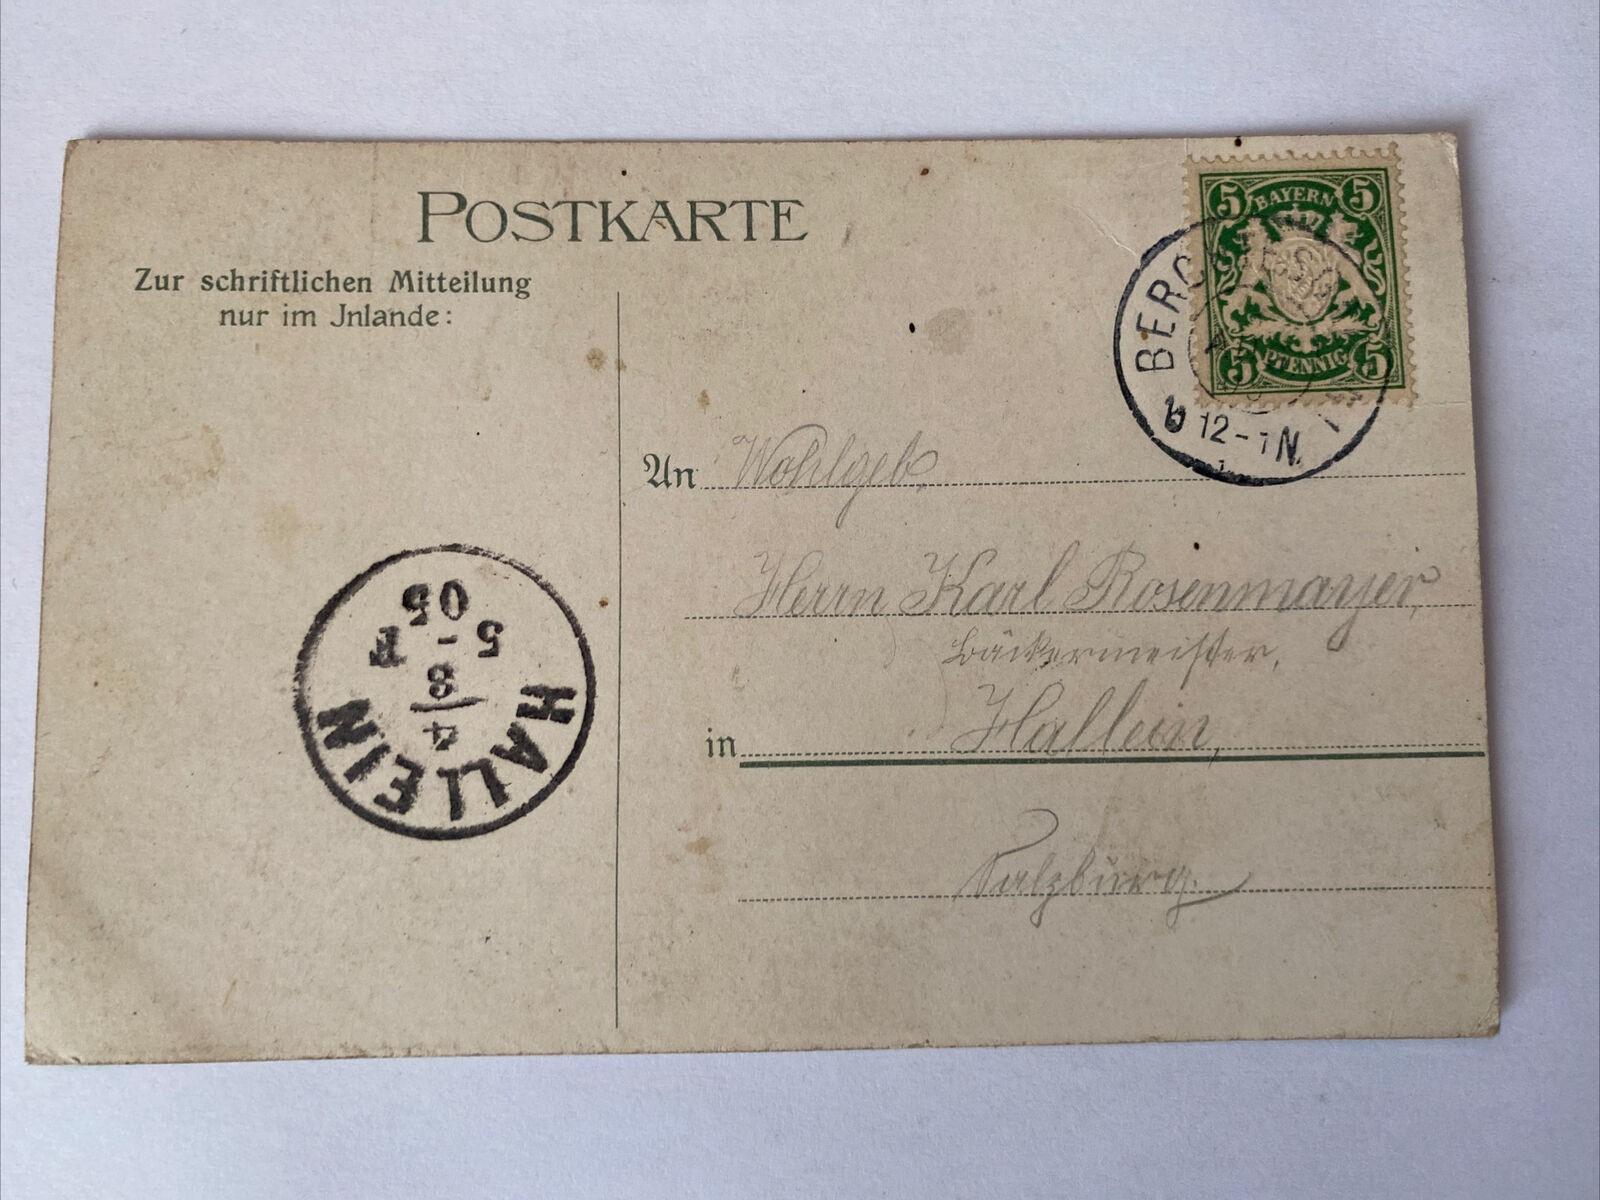 POSTKARTE
Zur schriftlichen Mitteilung
nur im Jnlande:
5 BAYERN 5
5 PFENNIG 5
b 12-1N.
An Wohlgeb.
Herrn Karl Rosenmayer,
Bäckermeister,
in Hallein,
Salzburg.
HALLEIN
4
8
5 - F
05